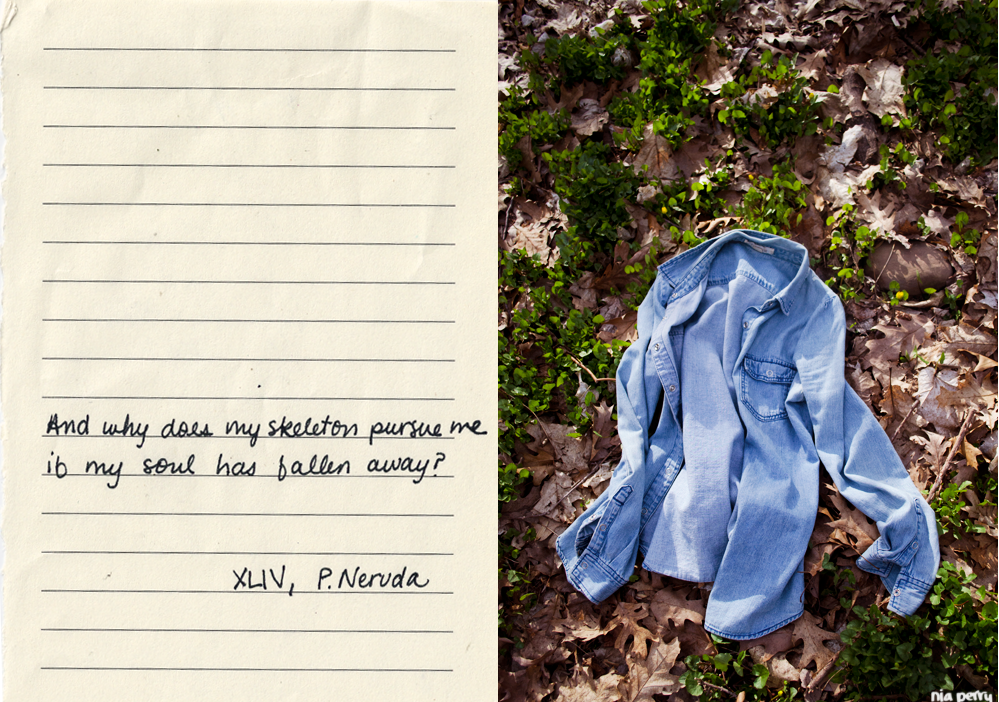 And why does my skeleton pursue me
if my soul has fallen away?
XLIV, P. Neruda
nia perry